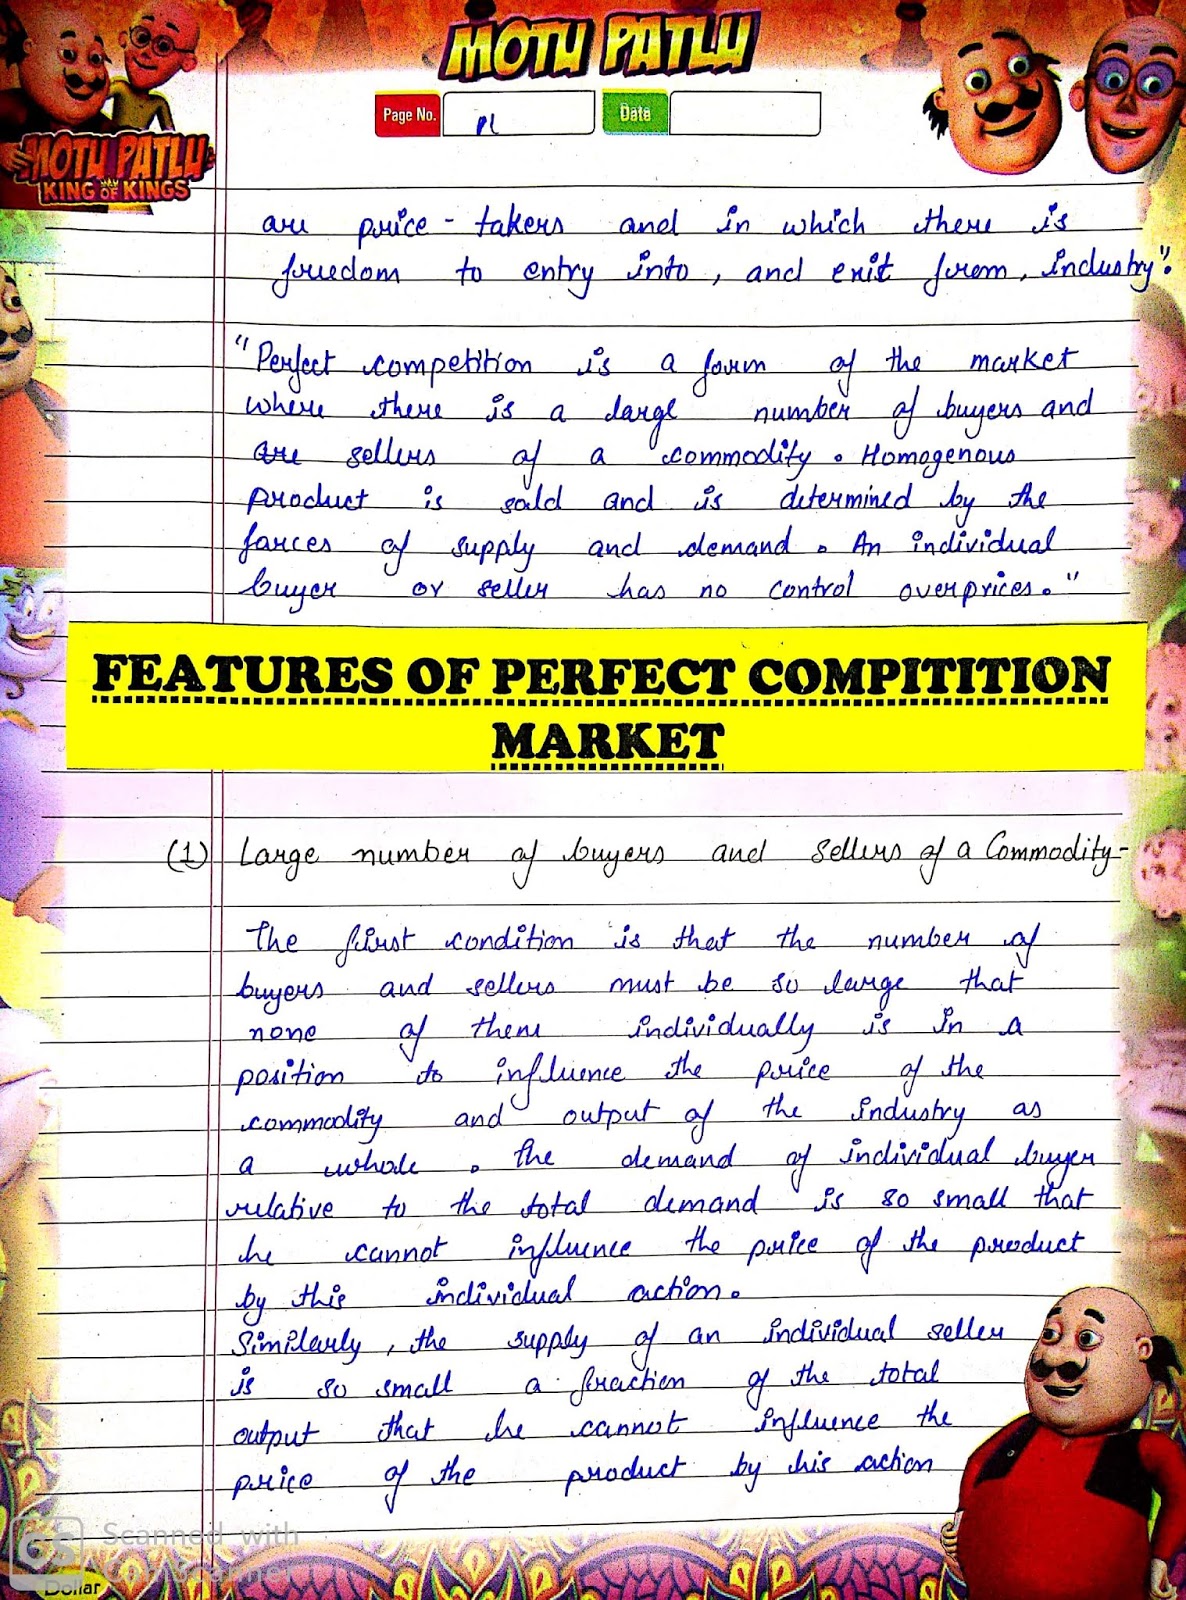 MOTU PATLU
Page No. Date
MOTU PATLU
KING OF KINGS
are price - takers and in which there is
freedom to entry into, and exit from, industry".
"Perfect competition is a form of the market
where there is a large number of buyers and
are sellers of a commodity. Homogenous
product is sold and is determined by the
forces of supply and demand. An individual
buyer or seller has no control over prices."
FEATURES OF PERFECT COMPITITION
MARKET
(1) Large number of buyers and sellers of a Commodity-
The first condition is that the number of
buyers and sellers must be so large that
none of them individually is in a
position to influence the price of the
commodity and output of the industry as
a whole. The demand of individual buyer
relative to the total demand is so small that
he cannot influence the price of the product
by this individual action.
Similarly, the supply of an individual seller
is so small a fraction of the total
output that he cannot influence the
price of the product by his action
CS Scanned with
CamScanner
Dollar